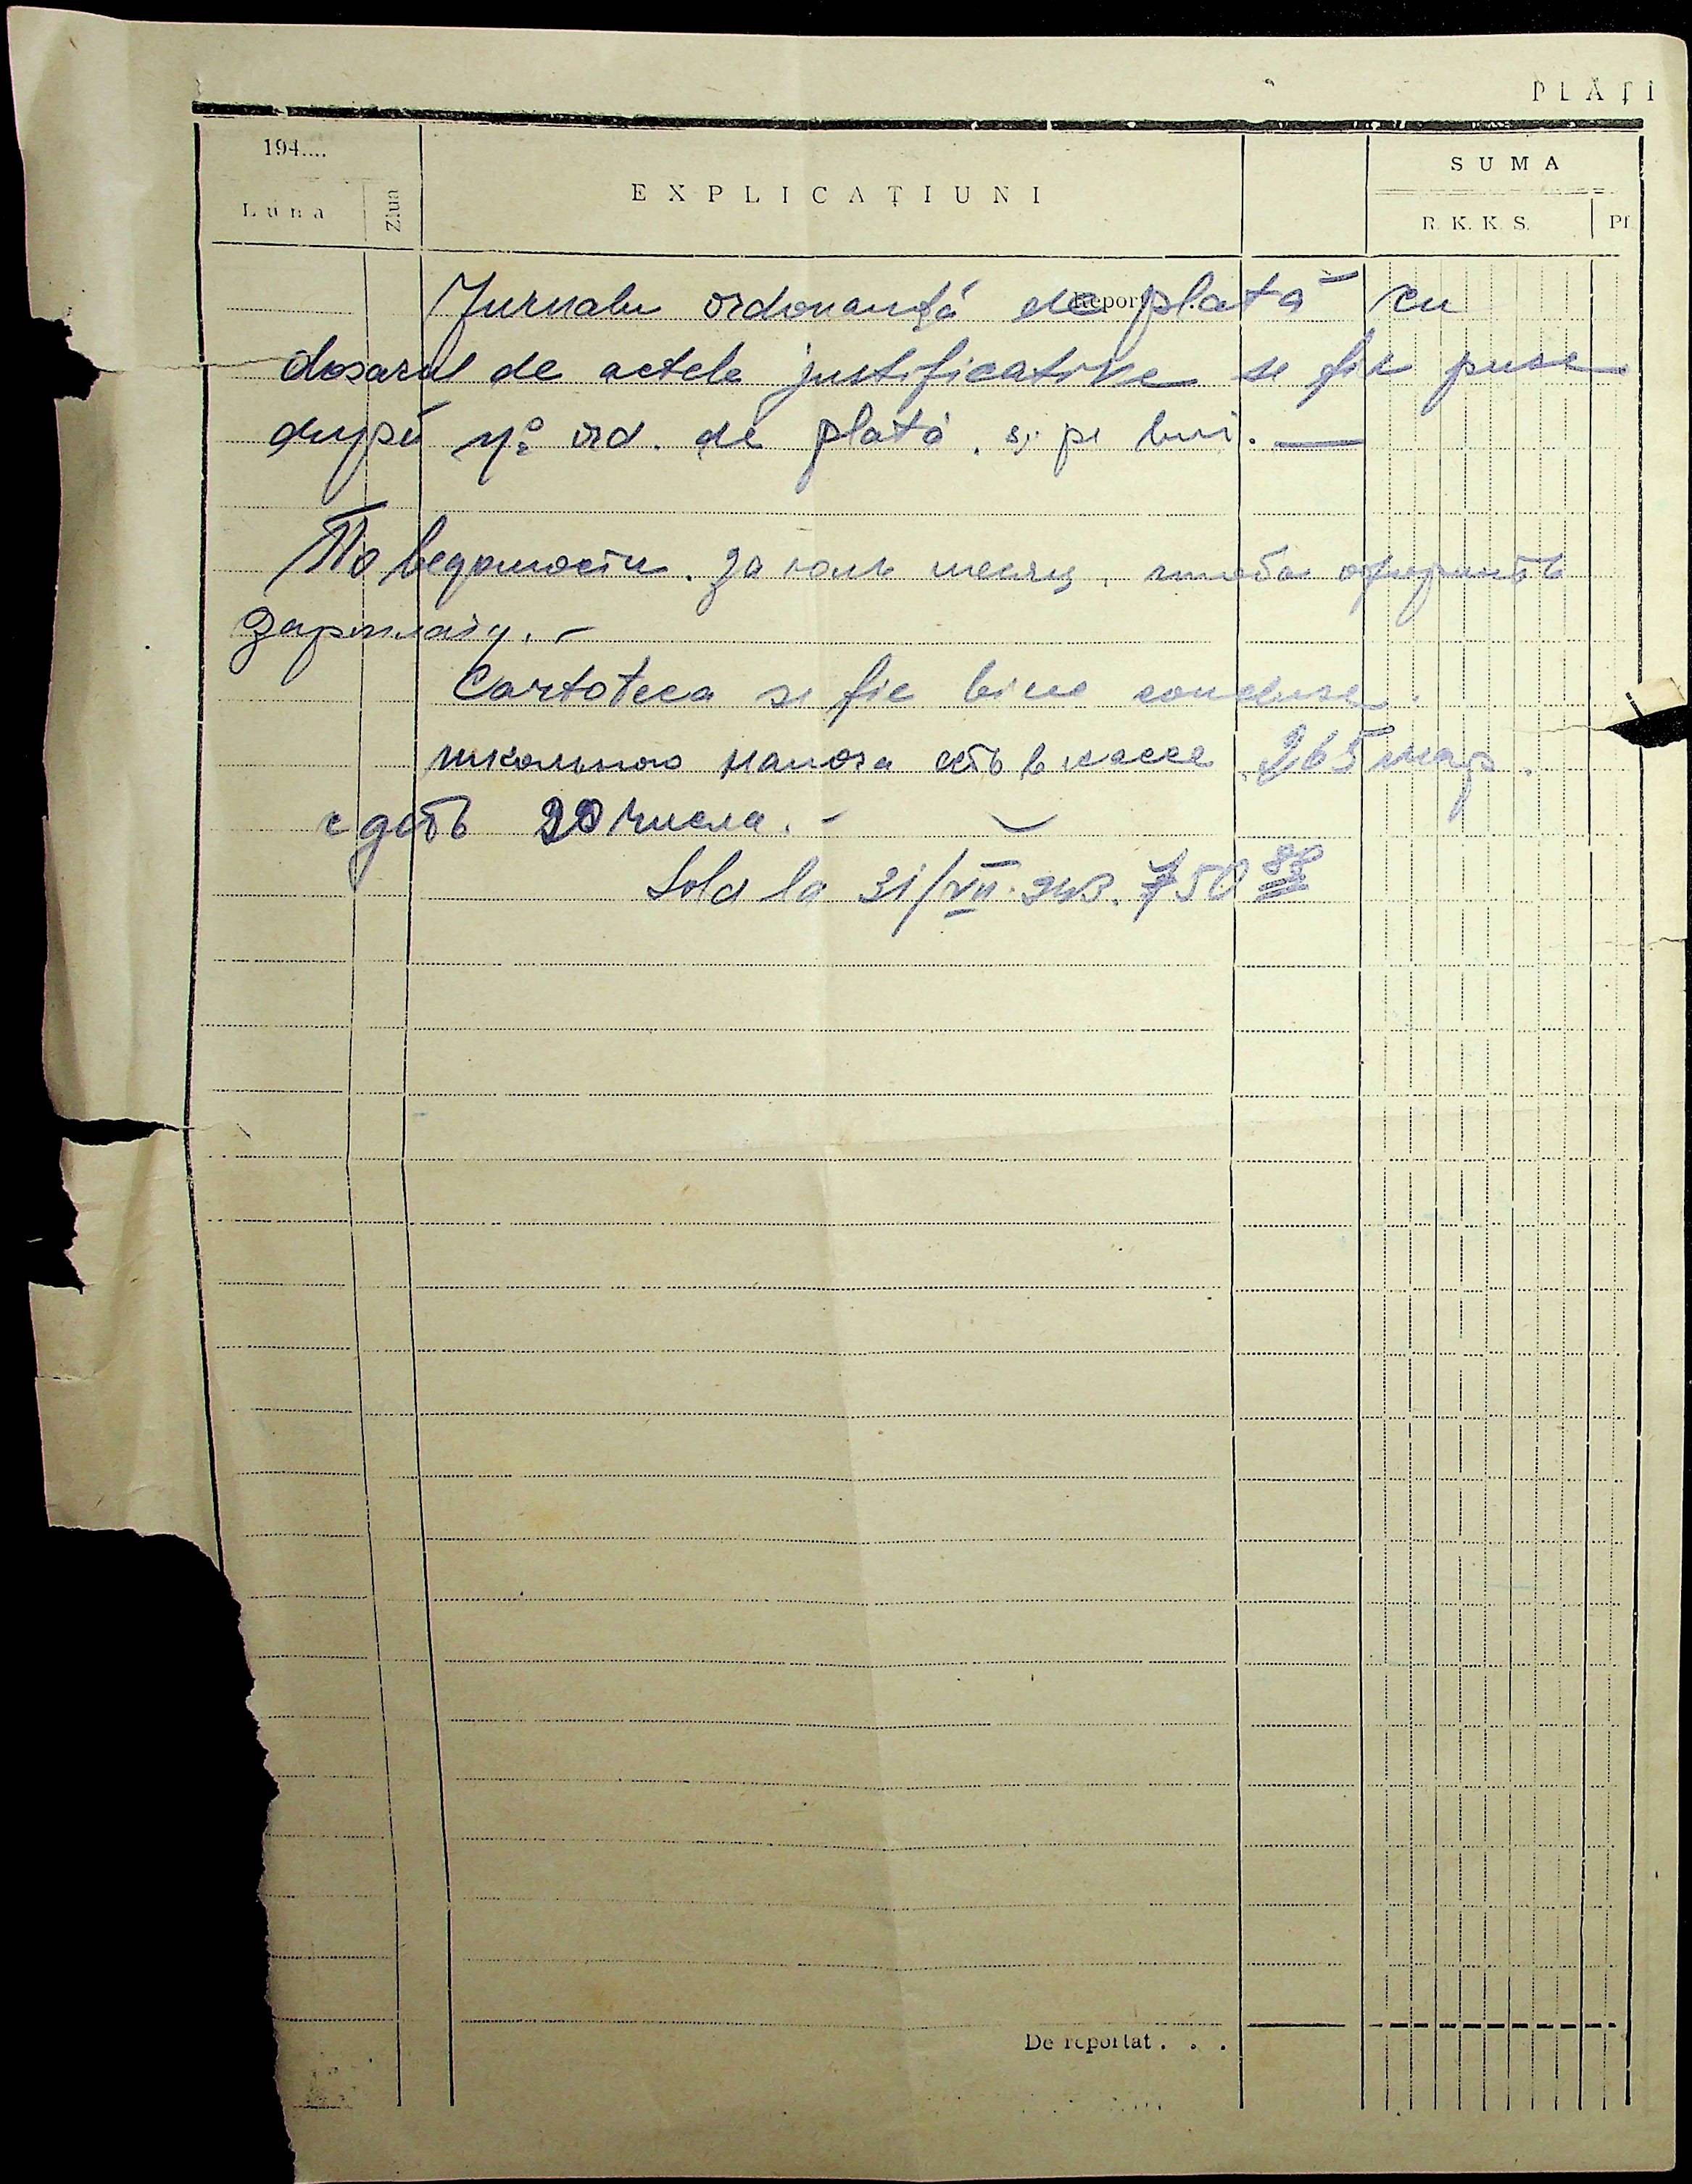 PLĂȚI
194....
Luna
Ziua
EXPLICAȚIUNI
SUMA
R. K. K. S.
Pf.
Report
Jurnalu ordonanță de plată cu
dosarul de actele justificative se fie puse
după № ord. de plată. și pe luni. —
По ведомости. За юль месяц,
зарплату. -
Cartoteca se fie bine conduse.
школьного налога есть в кассе 265 мар.
сдать 20 числа. -
Sold la 31/VII. 943. 750
De reportat . . .